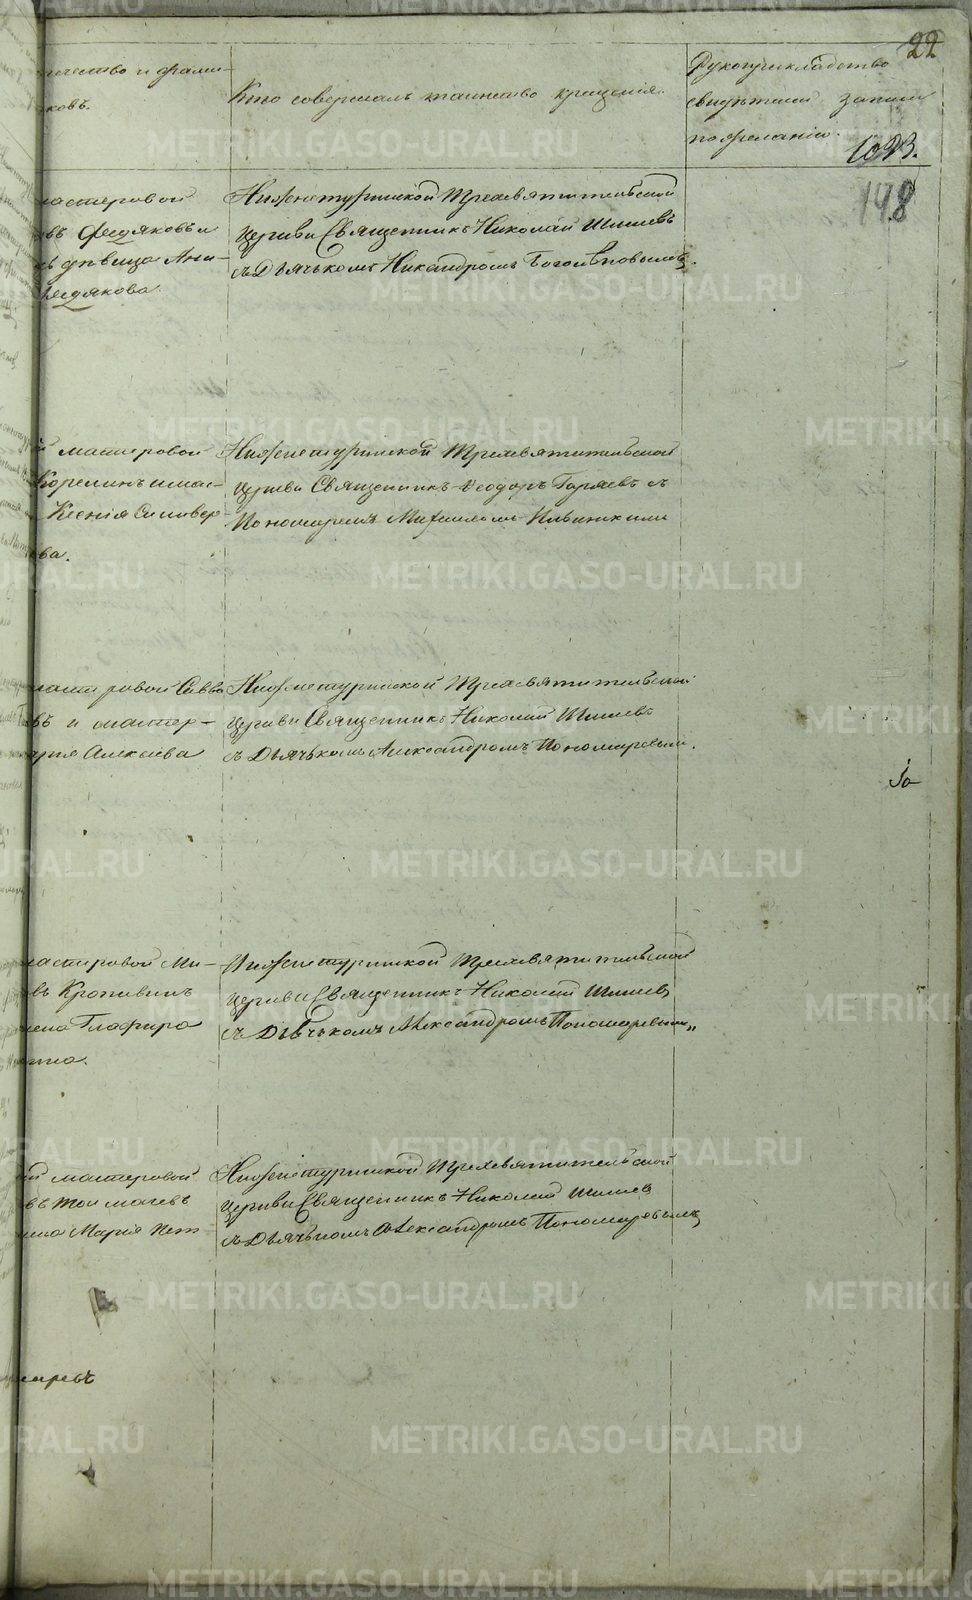 22
чество и фами–
ковъ.
Кто совершалъ таинство крещенія.
Рукоприкладство
свидѣтелей записи
по желанію.
1023.
148
мастеровой
въ Федяковъ и
дѣвица Ан–
Федякова.
Нижнетуринской Трехсвятительской
Церкви Священникъ Николай Шишевъ
съ Дьячькомъ Никандромъ Боголѣповымъ.
й мастеровой
Корелинъ и мас–
Ксенія Силивер–
ва.
Нижнетуринской Трехсвятительской
Церкви Священникъ Ѳеодоръ Горяевъ съ
Пономаремъ Михаиломъ
мастеровой Савва
въ и мастер–
рія Алексѣева
Нижнетуринской Трехсвятительской
Церкви Священникъ Николай Шишевъ
съ Дьячькомъ Александромъ Пономаревым.
мастеровой Ми–
въ Кропивинъ
жена Глафира
Нижнетуринской Трехсвятительской
Церкви Священникъ Николай Шишев,
съ Дьячькомъ Александромъ Пономаревым„
й мастеровой
въ Толмачевъ
жена Марія Пет
Нижнетуринской Трехсвятительской
Церкви Священникъ Николай Шишев
съ Дьячькомъ Александромъ Пономаревымъ
METRIKI.GASO-URAL.RU